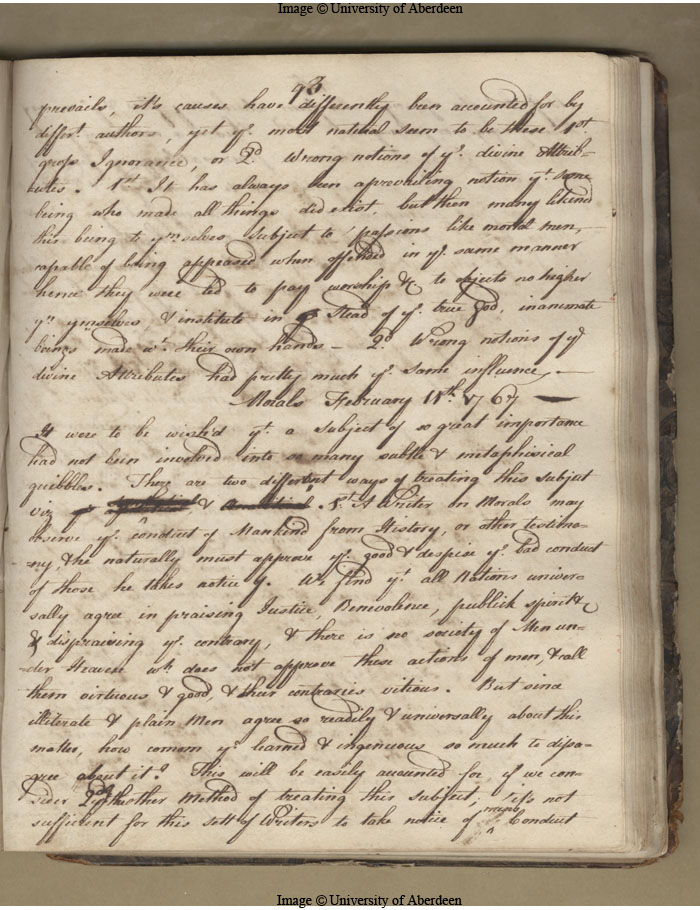 Image © University of Aberdeen
93
prevails, it's causes have differently been accounted for by
differt. authors, yet ye. most natural seem to be these 1st.
gross Ignorance, or 2d. Wrong notions of ye. divine Attrib-
utes. 1st It has always been a prevailing notion yt. some
being who made all things did exist, but then many likend
this being to ymselves subject to passions like mortal men,
capable of being appeased when offended in ye. same manner
hence they were led to pay worship &c. to objects no higher
yn ymselves & institute in Stead of ye. true God, inanimate
beings made wt. their own hands — 2d. Wrong notions of ye
divine Attributes had pretty much ye. same influence. —
Morals February 11th. 1767 —
It were to be wish'd yt. a Subject of so great importance
had not been involved into so many subtle & metaphisical
quibbles. There are two different ways of treating this subject
viz & 1st. A Writer on Morals may
observe ye. conduct of Mankind from History, or other testimo-
ny, & he naturally must approve ye. good & despise ye. bad conduct
of those he takes notice of. We find yt. all Nations univer-
sally agree in praising Justice, Benevolence, publick spirit &c
& dispraising ye. contrary, & there is no society of Men un-
der Heaven wh does not approve these actions of men, & call
them virtuous & good, & their contraries vitious. But since
illiterate & plain Men agree so readily & universally about this
matter, how comem ye. learned & ingenuous so much to disa-
gree about it? This will be easily accounted for, if we con-
sider 2d. Another Method of treating this subject, tis not
sufficient for this sett of Writers to take notice of mens Conduct
Image © University of Aberdeen